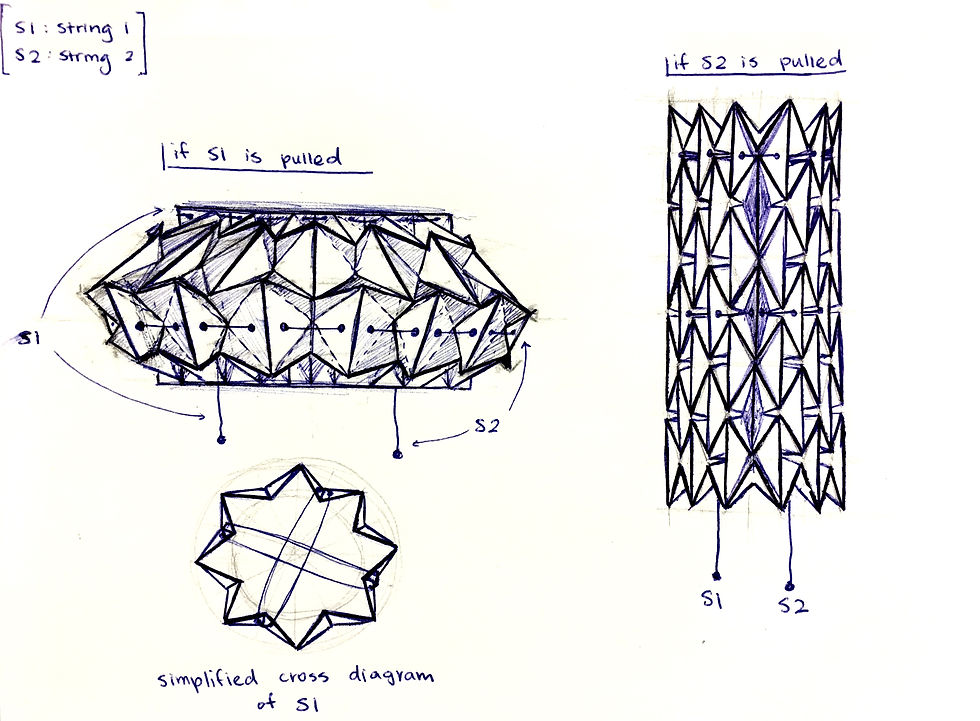 S1 : string 1
S2 : string 2
if S1 is pulled
if S2 is pulled
S1
S2
S1
S2
simplified cross diagram
of S1